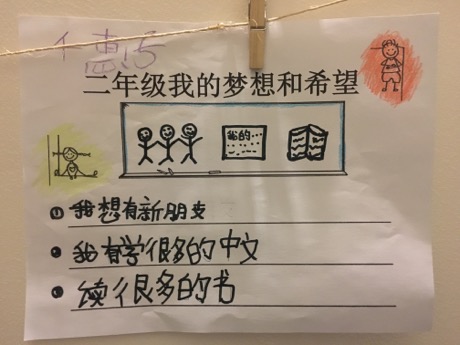 惠
二年级我的梦想和希望
我的...
我想有新朋友
我有学很多的中文
读很多的书